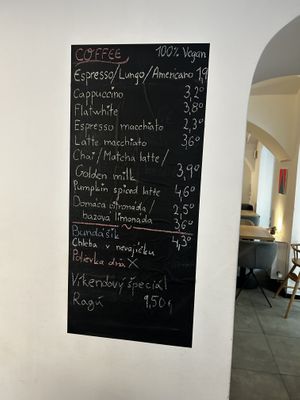 COFFEE 100% Vegan
Espresso/Lungo/Americano 1,9
Cappuccino 3,2⁰
Flatwhite 3,8⁰
Espresso macchiato 2,3⁰
Latte macchiato 36⁰
Chai/Matcha latte/
Golden milk 3,9⁰
Pumpkin spiced latte 46⁰
Domáca citronáda/ 2,5⁰
bazová limonáda 36⁰
Bundášik 4,3⁰
Chleba v nevajíčku
Polievka dňa X
Víkendový špeciál
Ragú 9,50